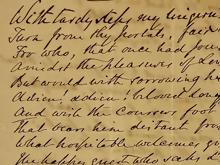 With tardy steps, my lingering
Turn from thy portals, fair
For who, that once had
Amidst the pleasures of
But would with sorrowing
Adieu, adieu! beloved
And with the Coursers foot
That bears him distant from
What hospitable welcomes
The happy guest who